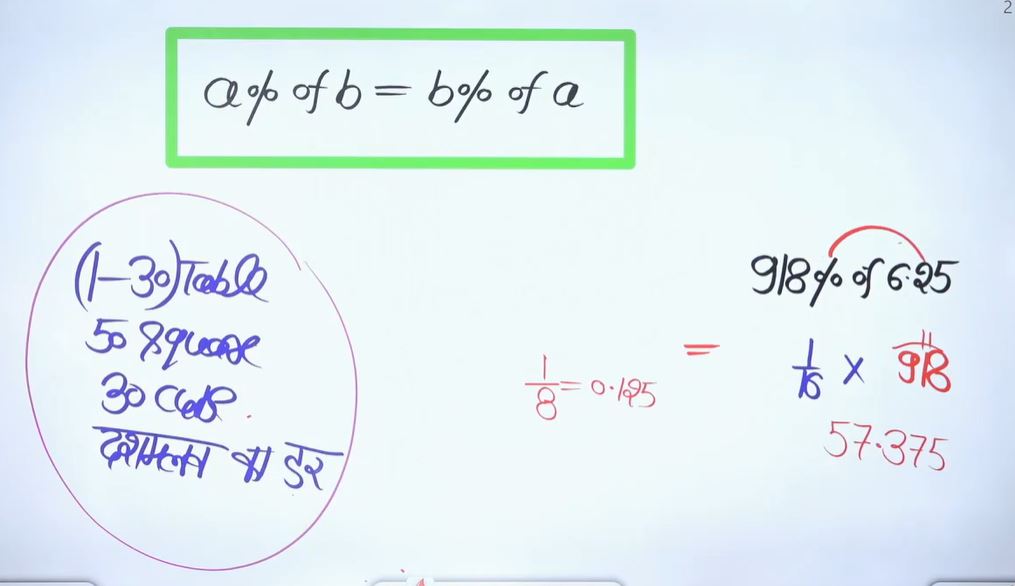 2
a% of b = b% of a
(1-30) Table
50 Square
30 Cube
दशमलव का डर
918% of 6.25
= 1/16 × 918
1/8 = 0.125
57.375